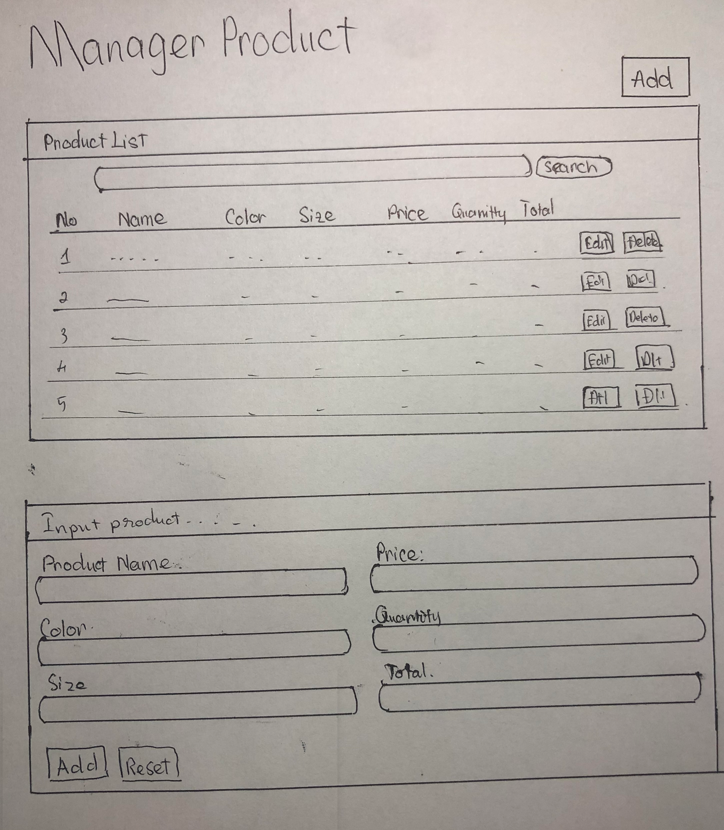 Manager Product
Add
Product List
Search
No Name Color Size Price Quanitty Total
1 ..... - - - - - - - - - - Edit Delete
2 — - - - - - Edt Del
3 — - - - - Edit Delete
4 — - - - - - Edit Dlt
5 — - - - - Dlt
Input product... - - .
Product Name: Price:
Color. Quantity
Size Total.
Add Reset